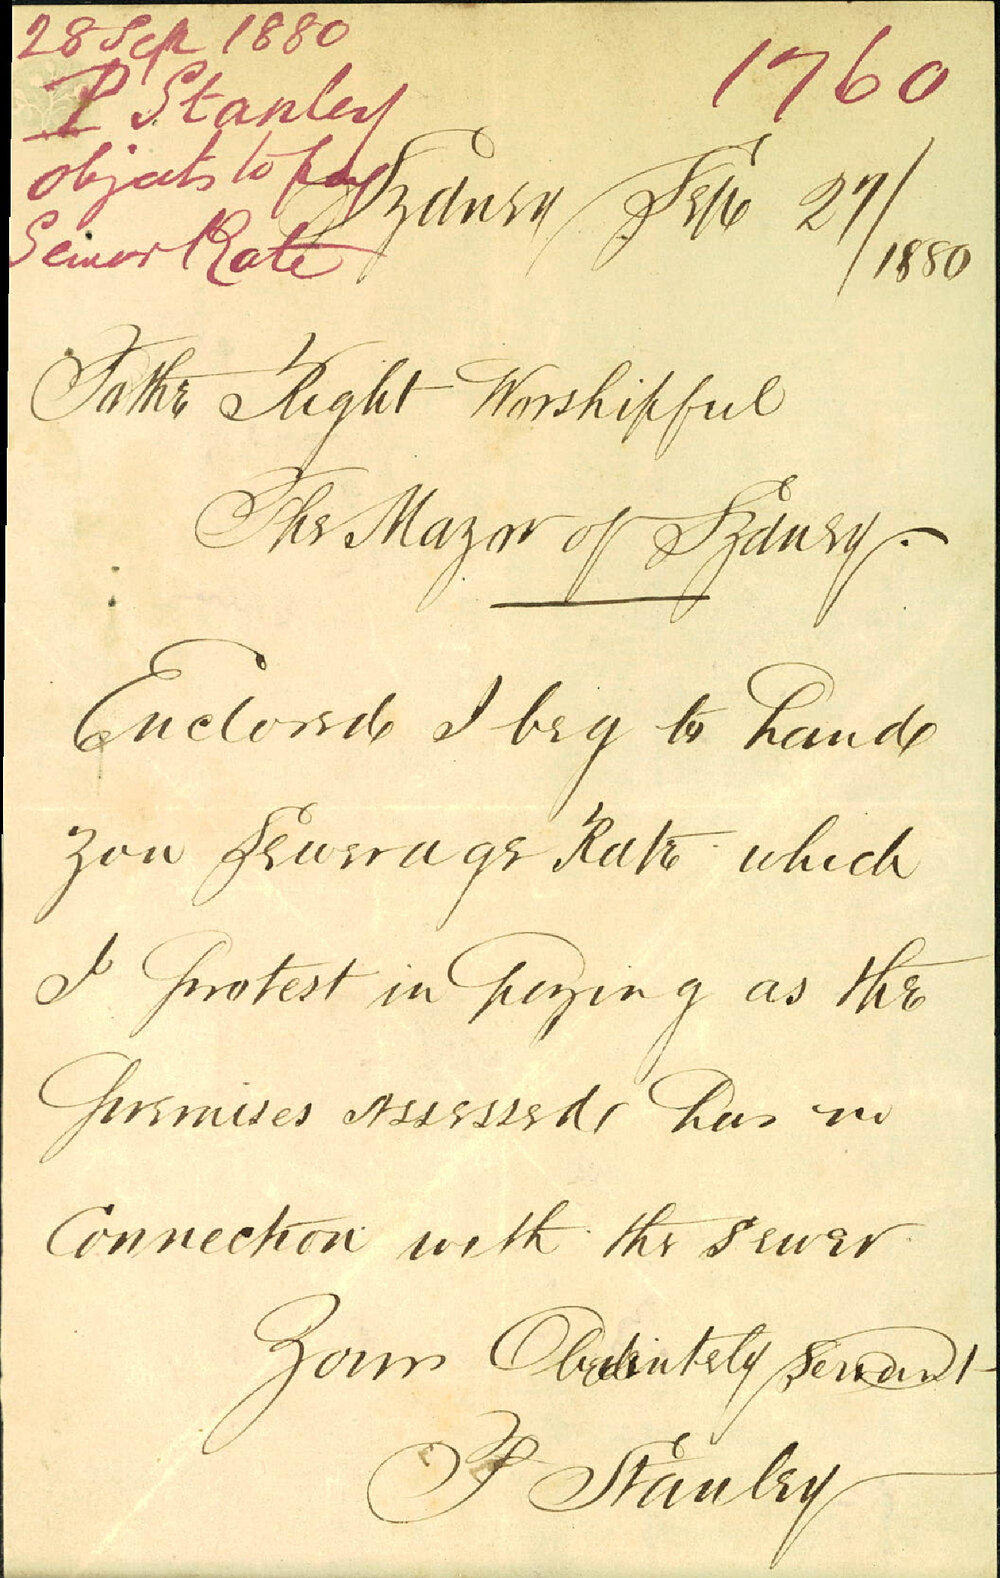 28 Sep 1880
P Stanley
objects to pay
Sewer Rate
1760
Sydney Sep 27/
1880
To the Right Worshipful
The Mayor of Sydney.
Enclosed I beg to hand
you Sewerage Rate which
I protest in paying as the
premises assessed has no
Connection with the sewer
Your Obedintely servant
P Stanley